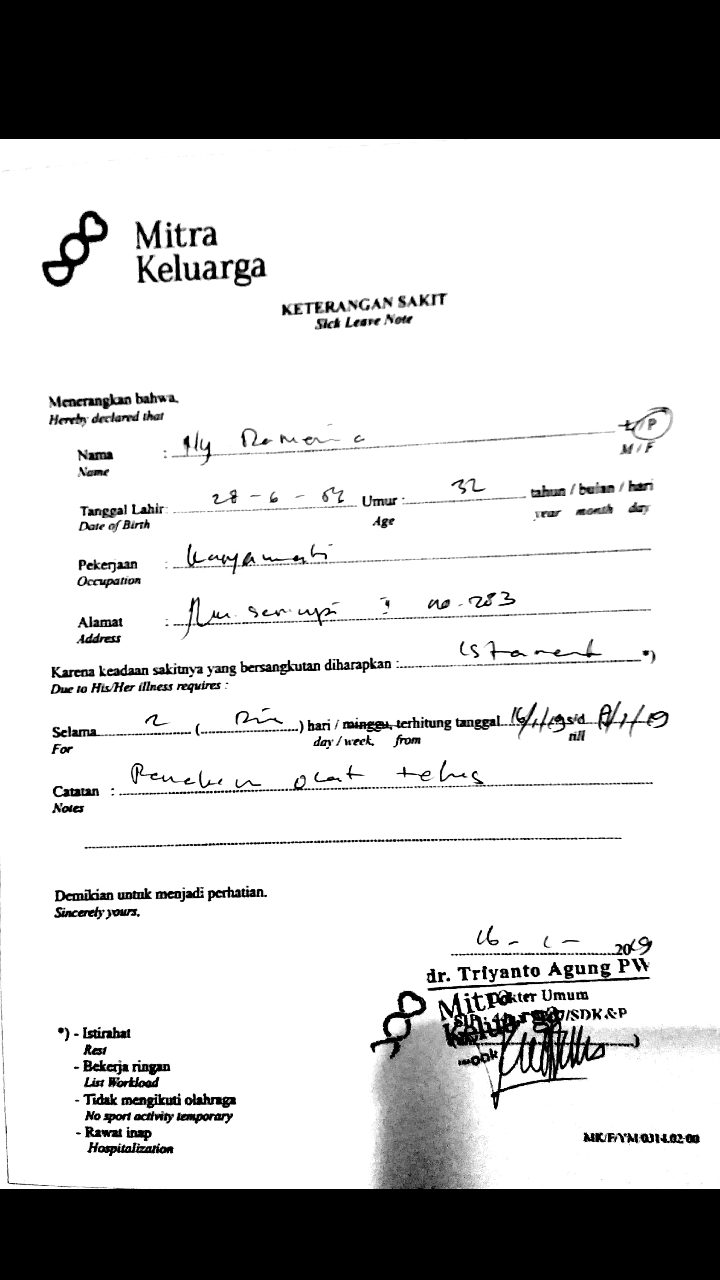 Mitra
Keluarga
KETERANGAN SAKIT
Sick Leave Note
Menerangkan bahwa,
Hereby declared that
Nama : Ny L/P
Name M / F
Tanggal Lahir: 28 - 6 - Umur : 32 tahun / bulan / hari
Date of Birth Age year month day
Pekerjaan : Karyawati
Occupation
Alamat : no. 283
Address
Karena keadaan sakitnya yang bersangkutan diharapkan : Istirahat *)
Due to His/Her illness requires :
Selama 2 ( Dua ) hari / minggu, terhitung tanggal 16/1/19 s/d 17/1/19
For day / week, from till
Catatan : obat
Notes
Demikian untuk menjadi perhatian.
Sincerely yours,
16 - 1 - 2019
dr. Triyanto Agung PW
Dokter Umum
Mitra
Keluarga /SDK &P
*) - Istirahat
Rest
- Bekerja ringan
List Workload
- Tidak mengikuti olahraga
No sport activity temporary
- Rawat inap
Hospitalization